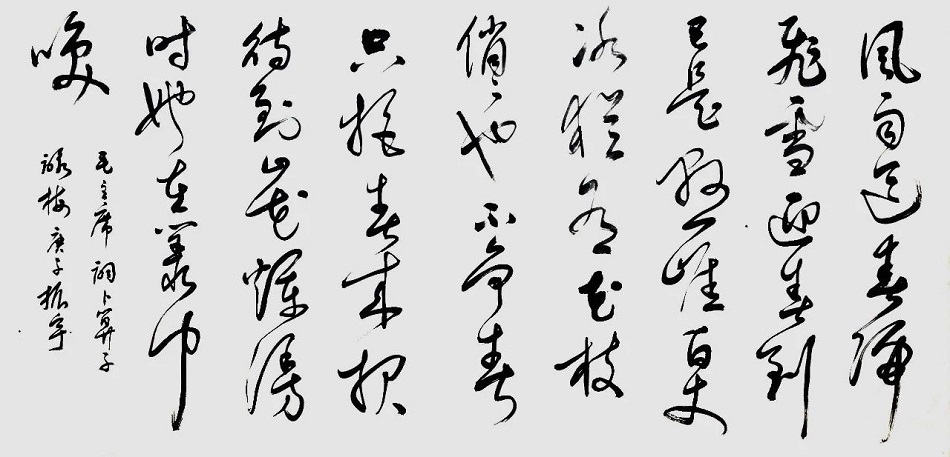 風雨送春歸
飛雪迎春到
已是懸崖百丈
冰猶有花枝
俏〻也不爭春
只把春來報
待到山花爛漫
时她在叢中
咲
毛主席詞卜算子
詠梅 庚子振宇